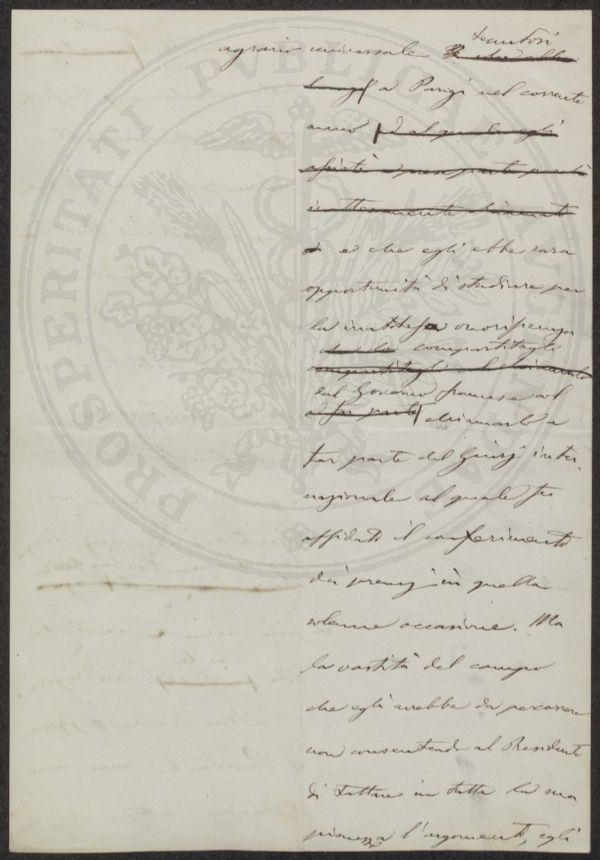 tenutosi
agrario universale
a Parigi nel corrente
anno ed al quale egli
assistè e prese parte
e che egli ebbe rara
opportunità di studiare per
la onorificenza
compartitagli
dal Governo francese col
chiamarlo a
far parte del Giurì inter-
nazionale al quale fu
affidato il conferimento
dei premj in quella
solenne occasione. Ma
la vastità del campo
che egli avrebbe da percorrere
non consentendo al Presidente
di trattare in tutta la sua
pienezza l'argomento, egli
PROSPERITATI PVBLICAE AVGENDAE